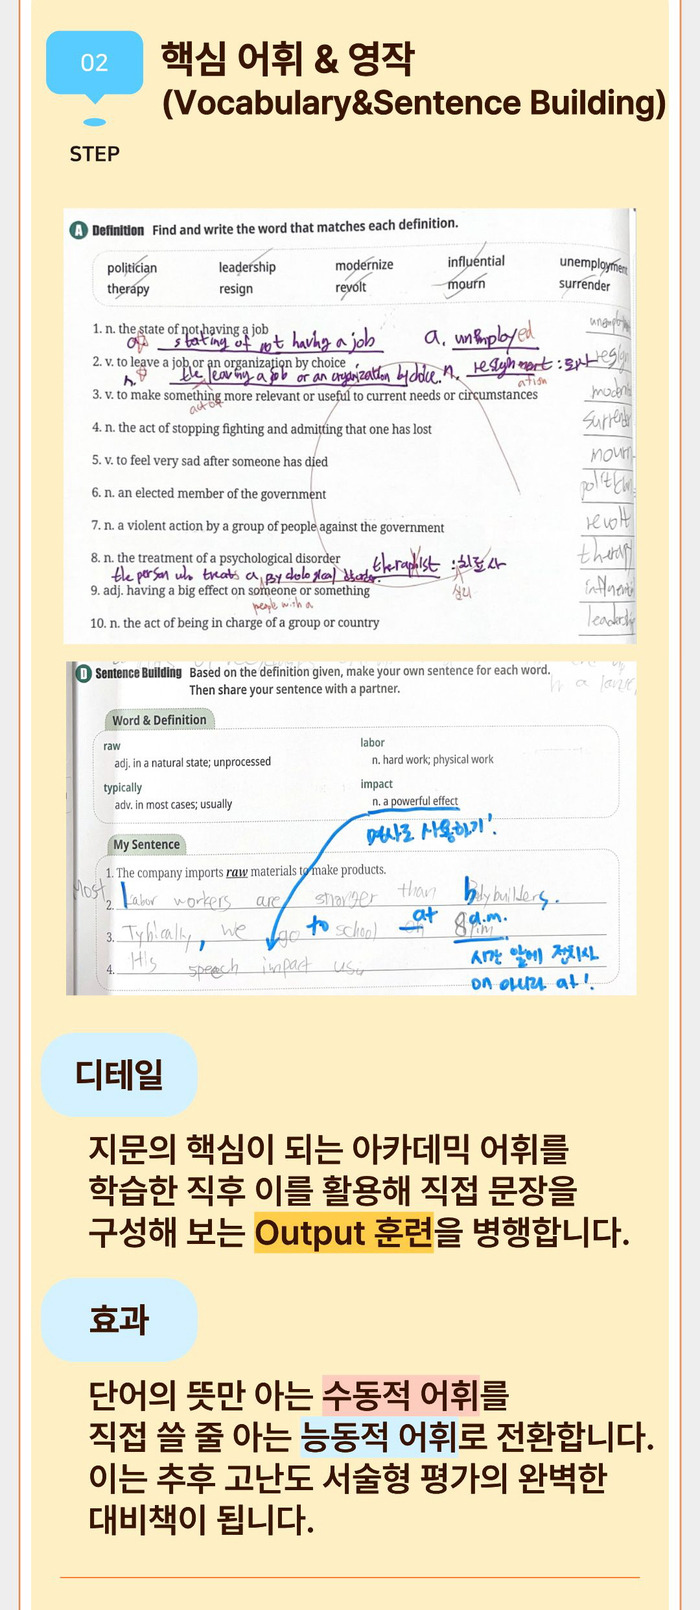 02
STEP
핵심 어휘 & 영작
(Vocabulary&Sentence Building)
A Definition Find and write the word that matches each definition.
politician leadership modernize influential unemployment
therapy resign revolt mourn surrender
1. n. the state of not having a job
stating of not having a job a. unemployed
2. v. to leave a job or an organization by choice
the leaving a job or an organization by choice. n.
ation
3. v. to make something more relevant or useful to current needs or circumstances
4. n. the act of stopping fighting and admitting that one has lost
5. v. to feel very sad after someone has died
6. n. an elected member of the government
7. n. a violent action by a group of people against the government
8. n. the treatment of a psychological disorder
theraphist : 치료사
the person who treats a psychological disorder.
심리
9. adj. having a big effect on someone or something
people with a
10. n. the act of being in charge of a group or country
surrender
mourn
revolt
therapy
D Sentence Building Based on the definition given, make your own sentence for each word.
Then share your sentence with a partner.
Word & Definition
raw labor
adj. in a natural state; unprocessed n. hard work; physical work
typically impact
adv. in most cases; usually n. a powerful effect
명사로 사용하기!
My Sentence
1. The company imports raw materials to make products.
Most
2. labor workers are stronger than bodybuilders.
at a.m.
3. Typically, we go to school 8
시간 앞에 전치사
4. His speech impact
on 아니라 at!
디테일
지문의 핵심이 되는 아카데믹 어휘를
학습한 직후 이를 활용해 직접 문장을
구성해 보는 Output 훈련을 병행합니다.
효과
단어의 뜻만 아는 수동적 어휘를
직접 쓸 줄 아는 능동적 어휘로 전환합니다.
이는 추후 고난도 서술형 평가의 완벽한
대비책이 됩니다.